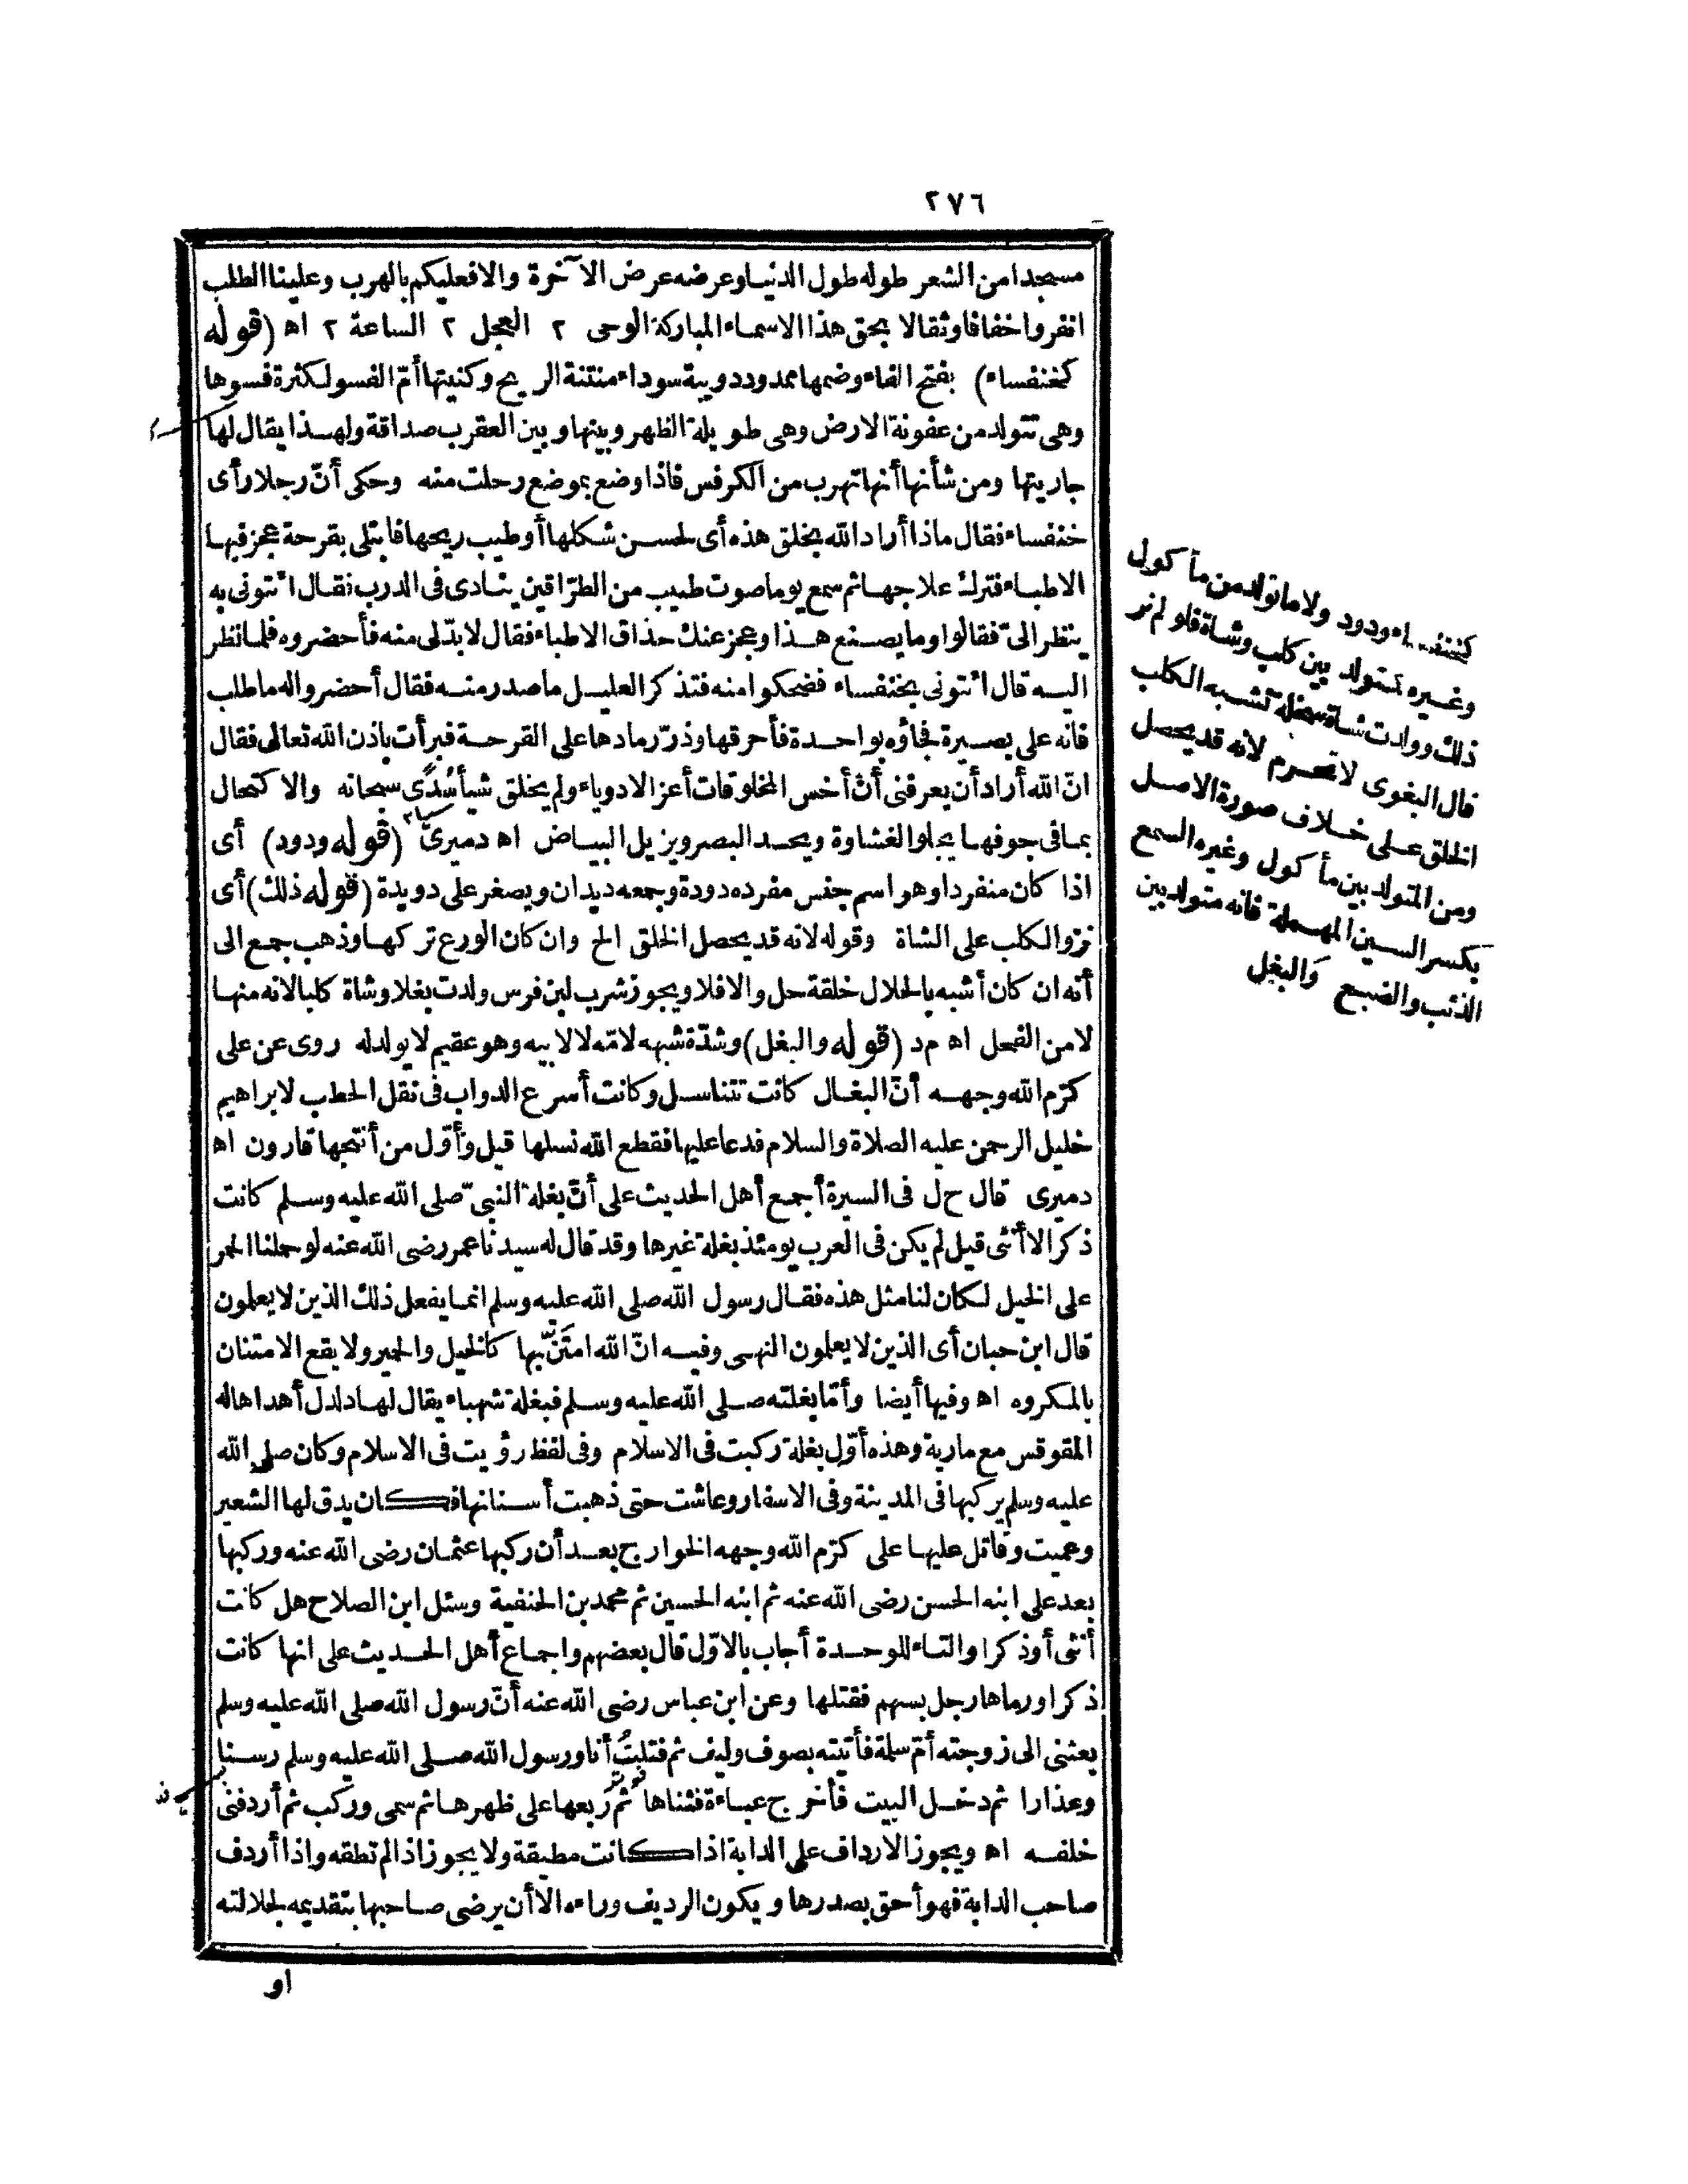 ٢٧٦
مسجدا من الشعر طوله طول الدنيا وعرضه عرض الآخرة والا فعليكم بالهرب وعلينا الطلب
انفروا خفافا وثقالا بحق هذا الاسماء المباركة الوحى ٢ العجل ٢ الساعة ٢ اه (قوله
كخنفساء) بفتح الفاء وضمها ممدود دويبة سوداء منتنة الريح وكنيتها أمّ الفسو لكثرة فسوها
وهى تتولد من عفونة الارض وهى طويلة الظهر وبينها وبين العقرب صداقة ولهذا يقال لها
جاريتها ومن شأنها أنها تهرب من الكرفس فاذا وضع بموضع رحلت منه وحكى أنّ رجلا رأى
خنفساء فقال ماذا أراد الله بخلق هذه أى لحسن شكلها أو طيب ريحها فابتلى بقرحة عجز فيها
الاطباء فترك علاجها ثم سمع يوما صوت طبيب من الطرّاقين ينادى فى الدرب فقال ائتونى به
ينظر الىّ فقالوا وما يصنع هذا وعجز عنك حذاق الاطباء فقال لا بدّ لى منه فأحضروه فلما نظر
اليه قال ائتونى بخنفساء فضحكوا منه فتذكر العليل ما صدر منه فقال أحضروا له ما طلب
فانه على بصيرة فجاؤه بواحدة فأحرقها وذرّ رمادها على القرحة فبرأت باذن الله تعالى فقال
انّ الله أراد أن يعرفنى أنّ أخس المخلوقات أعز الادوياء ولم يخلق شيأ سُدًى سبحانه والاكتحال
بما فى جوفها يجلو الغشاوة ويحد البصر ويزيل البياض اه دميرىّ (قوله ودود) أى
اذا كان منفردا وهو اسم جنس مفرده دودة وجمعه ديدان ويصغر على دويدة (قوله ذلك) أى
نزو الكلب على الشاة وقوله لانه قد يحصل الخلق الخ وان كان الورع تركها وذهب جمع الى
أنه ان كان أشبه بالحلال خلقة حل والا فلا ويجوز شرب لبن فرس ولدت بغلا وشاة كلبا لانه منها
لا من الفحل اه م د (قوله والبغل) وشدّة شبهه لامّه لا لابيه وهو عقيم لا يولد له روى عن على
كرّم الله وجهه أنّ البغال كانت تتناسل وكانت أسرع الدواب فى نقل الحطب لابراهيم
خليل الرحمن عليه الصلاة والسلام فدعا عليها فقطع الله نسلها قيل وأوّل من أنتجها قارون اه
دميرى قال ح ل فى السيرة أجمع أهل الحديث على أنّ بغلة النبىّ صلى الله عليه وسلم كانت
ذكرا لا أنثى قيل لم يكن فى العرب يومئذ بغلة غيرها وقد قال له سيدنا عمر رضى الله عنه لو حملنا الحمر
على الخيل لكان لنا مثل هذه فقال رسول الله صلى الله عليه وسلم انما يفعل ذلك الذين لا يعلمون
قال ابن حبان أى الذين لا يعلمون النهى وفيه انّ الله امتَنّ بها كالخيل والحمير ولا يقع الامتنان
بالمكروه اه وفيها أيضا وأمّا بغلته صلى الله عليه وسلم فبغلة شهباء يقال لها دلدل أهداها له
المقوقس مع مارية وهذه أوّل بغلة ركبت فى الاسلام وفى لفظ رؤيت فى الاسلام وكان صلى الله
عليه وسلم يركبها فى المدينة وفى الاسفار وعاشت حتى ذهبت أسنانها فكان يدق لها الشعير
وعميت وقاتل عليها على كرّم الله وجهه الخوارج بعد أن ركبها عثمان رضى الله عنه وركبها
بعد على ابنه الحسن رضى الله عنه ثم ابنه الحسين ثم محمد بن الحنفية وسئل ابن الصلاح هل كانت
أنثى أو ذكرا والتاء للوحدة أجاب بالاوّل قال بعضهم واجماع أهل الحديث على انها كانت
ذكرا ورماها رجل بسهم فقتلها وعن ابن عباس رضى الله عنه أنّ رسول الله صلى الله عليه وسلم
بعثنى الى زوجته أمّ سلمة فأتيته بصوف وليف ثم فتلتُ أنا ورسول الله صلى الله عليه وسلم رسنا
وعذارا ثم دخل البيت فأخرج عباءة فثناها ثم ربعها على ظهرها ثم سمى وركب ثم أردفنى
خلفه اه ويجوز الارداف على الدابة اذا كانت مطيقة ولا يجوز اذا لم تطقه واذا أردف
صاحب الدابة فهو أحق بصدرها ويكون الرديف وراءه الا أن يرضى صاحبها بتقديمه لجلالته
او
كخنفساء ودود ولا ما تولد من مأكول
وغيره كمتولد بين كلب وشاة فلو لم نر
ذلك وولدت شاة سخلة تشبه الكلب
قال البغوى لا تحرم لانه قد يحصل
الخلق على خلاف صورة الاصل
ومن المتولد بين مأكول وغيره السمع
بكسر السين المهملة فانه متولد بين
الذئب والضبع والبغل